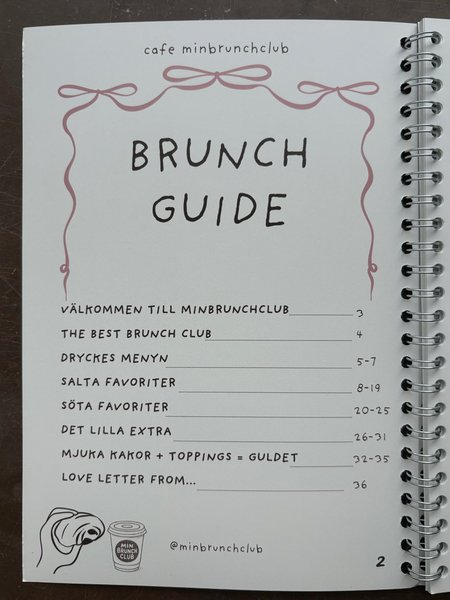 cafe minbrunchclub
BRUNCH
GUIDE
VÄLKOMMEN TILL MINBRUNCHCLUB 3
THE BEST BRUNCH CLUB 4
DRYCKES MENYN 5-7
SALTA FAVORITER 8-19
SÖTA FAVORITER 20-25
DET LILLA EXTRA 26-31
MJUKA KAKOR + TOPPINGS = GULDET 32-35
LOVE LETTER FROM... 36
MIN
BRUNCH
CLUB
@minbrunchclub
2